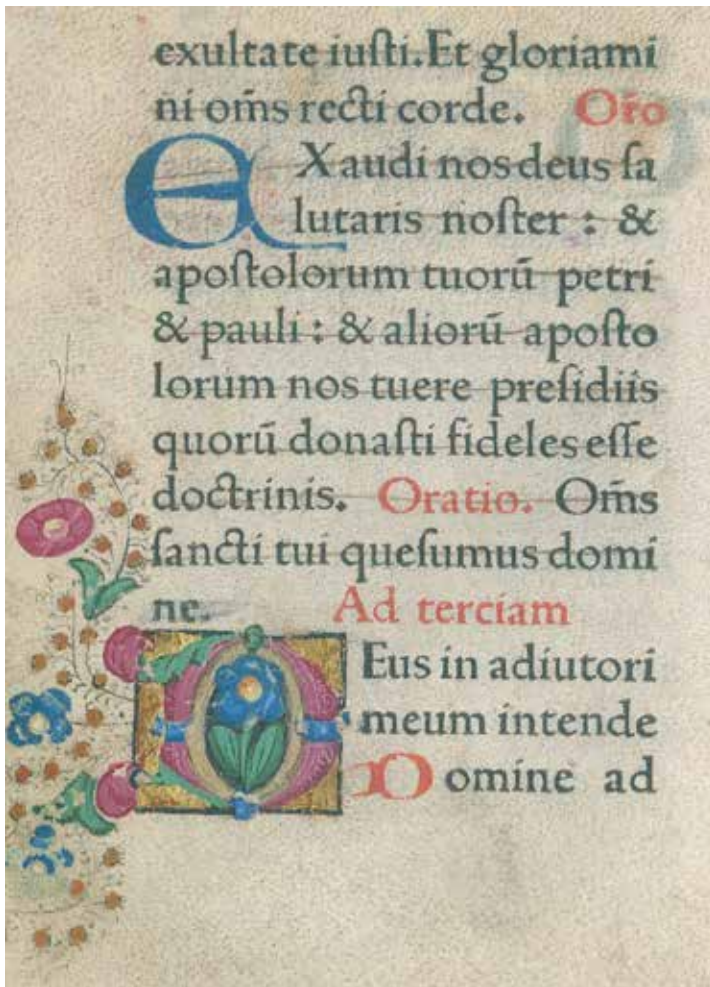 exultate iuſti. Et gloriami
ni om̃s recti corde. Or̃o
EXaudi nos deus ſa
lutaris noſter : &
apoſtolorum tuorū petri
& pauli : & aliorū apoſto
lorum nos tuere preſidiis
quorū donaſti fideles eſſe
doctrinis. Oratio. Om̃s
ſancti tui queſumus domi
ne. Ad terciam
DEus in adiutori
meum intende
Domine ad